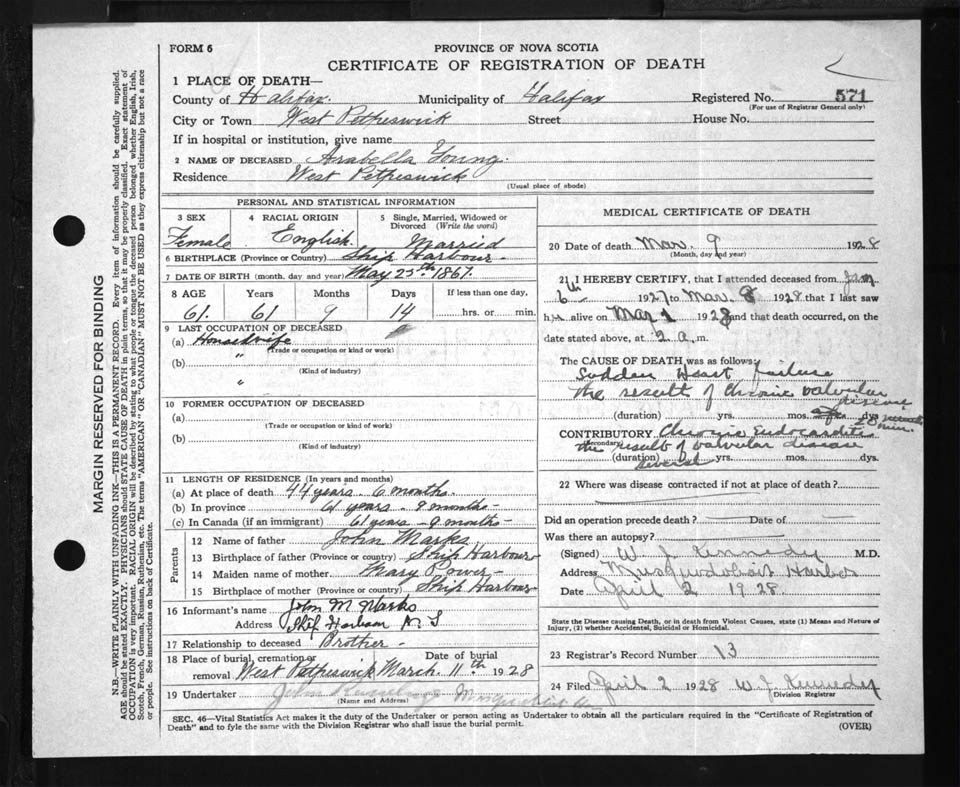 FORM 6
PROVINCE OF NOVA SCOTIA
CERTIFICATE OF REGISTRATION OF DEATH
1 PLACE OF DEATH—
County of Halifax. Municipality of Halifax Registered No. 571
(For use of Registrar General only)
City or Town West Petpeswick Street House No.
If in hospital or institution, give name
2 NAME OF DECEASED Arabella Young.
Residence West Petpeswick
(Usual place of abode)
PERSONAL AND STATISTICAL INFORMATION
3 SEX 4 RACIAL ORIGIN 5 Single, Married, Widowed or Divorced (Write the word)
Female. English. Married
6 BIRTHPLACE (Province or Country) Ship Harbour—
7 DATE OF BIRTH (month, day and year) May 25th 1867.
8 AGE Years Months Days If less than one day,
61. 61 9 14 hrs. or min.
9 LAST OCCUPATION OF DECEASED
(a) Housewife
(Trade or occupation or kind of work)
(b) "
(Kind of industry)
"
10 FORMER OCCUPATION OF DECEASED
(a)
(Trade or occupation or kind of work)
(b)
(Kind of industry)
11 LENGTH OF RESIDENCE (In years and months)
(a) At place of death 44 years. 6 months.
(b) In province 61 years - 9 months -
(c) In Canada (if an immigrant) 61 years - 9 months -
Parents
12 Name of father John Marks
13 Birthplace of father (Province or country) Ship Harbour
14 Maiden name of mother Mary Power—
15 Birthplace of mother (Province or country) Ship Harbour
16 Informant's name John M Marks
Address Ship Harbour N. S
17 Relationship to deceased Brother -
18 Place of burial, cremation or removal West Petpeswick Date of burial March 11th 1928
19 Undertaker John
(Name and Address)
MEDICAL CERTIFICATE OF DEATH
20 Date of death Mar. 9 1928
(Month, day and year)
21 I HEREBY CERTIFY, that I attended deceased from Jan
6th 1927 to Mar 8 1928 that I last saw
her alive on Mar 1 1928 and that death occurred, on the
date stated above, at 2 a.m.
The CAUSE OF DEATH was as follows:
Sudden Heart failure
the result of Chronic valvular disease
(duration) yrs. mos. dys
CONTRIBUTORY Chronic Endocarditis
(Secondary) the result of valvular disease
(duration) several yrs. mos. dys.
22 Where was disease contracted if not at place of death?
Did an operation precede death? — Date of —
Was there an autopsy? —
(Signed) W. J. Kennedy M.D.
Address Musquodoboit Harbor
Date April 2 1928.
State the Disease causing Death, or in death from Violent Causes, state (1) Means and Nature of
Injury, (2) whether Accidental, Suicidal or Homicidal.
23 Registrar's Record Number 13
24 Filed April 2 1928 W. J. Kennedy
Division Registrar
SEC. 46—Vital Statistics Act makes it the duty of the Undertaker or person acting as Undertaker to obtain all the particulars required in the "Certificate of Registration of
Death" and to fyle the same with the Division Registrar who shall issue the burial permit. (OVER)
MARGIN RESERVED FOR BINDING
N.B.—WRITE PLAINLY WITH UNFADING INK—THIS IS A PERMANENT RECORD. Every item of information should be carefully supplied.
AGE should be stated EXACTLY. PHYSICIANS should STATE CAUSE OF DEATH in plain terms, so that it may be properly classified. Exact statement of
OCCUPATION is very important. RACIAL ORIGIN will be described by stating to what people or tongue the deceased person belonged whether English, Irish,
Scotch, French, German, Russian, Ruthenian, etc. The terms "AMERICAN" OR "CANADIAN" MUST NOT BE USED as they express citizenship but not a race
or people. See instructions on back of Certificate.